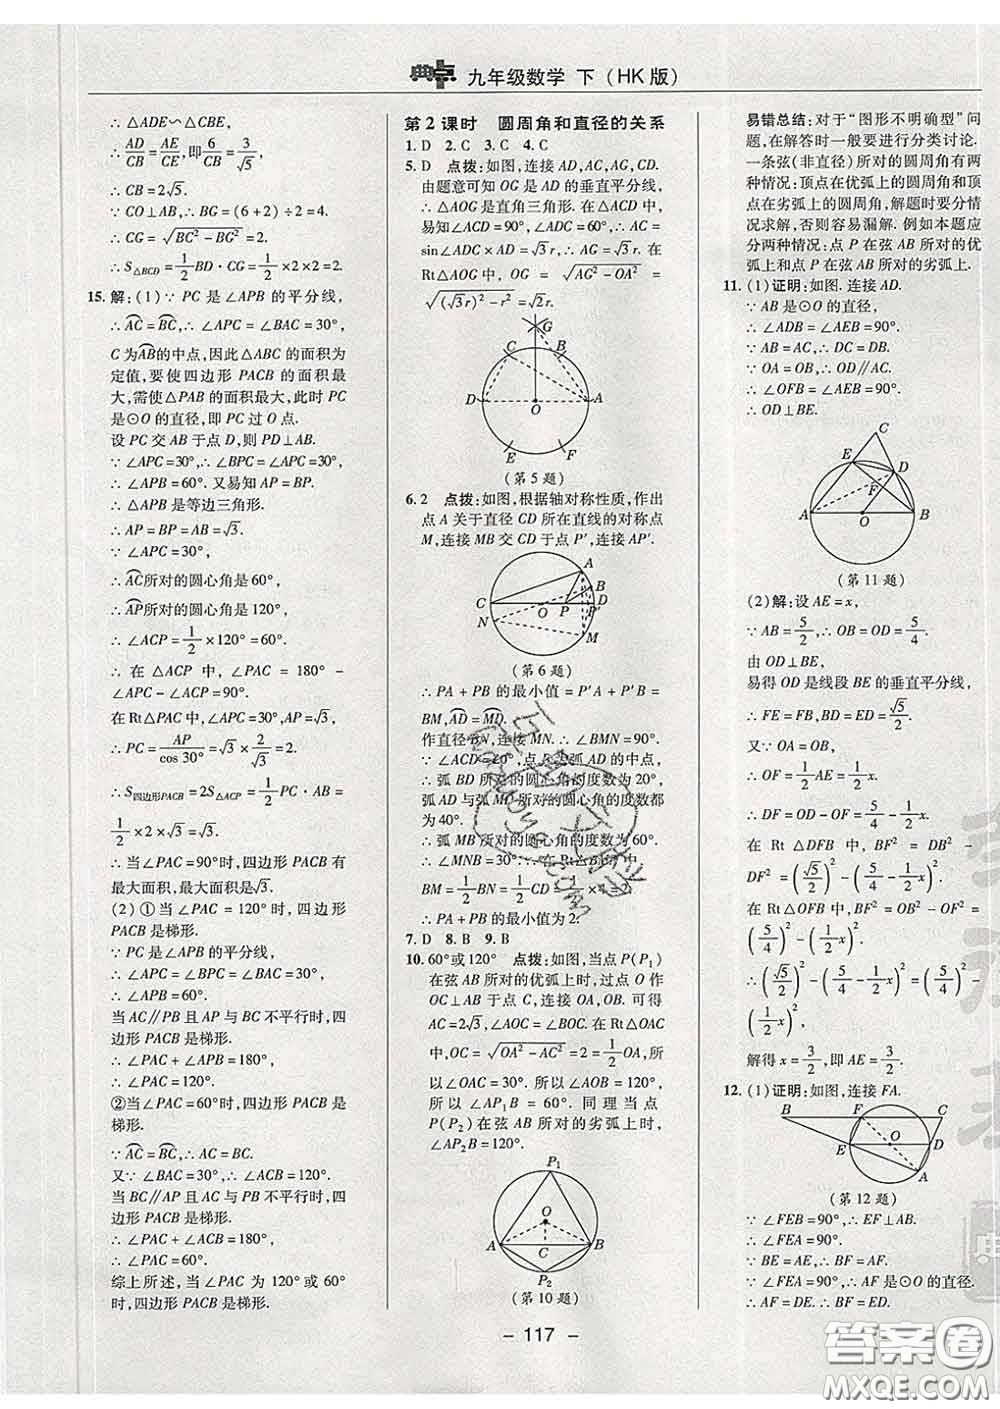 典点 九年级数学 下(HK版)
∴△ADE∽△CBE,
∴AD/CB=AE/CE,即6/CB=3/√5,
∴CB=2√5.
∵CO⊥AB,∴BG=(6+2)÷2=4.
∴CG=√(BC²-BG²)=2.
∴S△BCD=1/2BD·CG=1/2×2×2=2.
15.解:(1)∵PC是∠APB的平分线,
∴AC=BC,∴∠APC=∠BAC=30°,
C为AB的中点,因此△ABC的面积为
定值,要使四边形PACB的面积最
大,需使△PAB的面积最大,此时PC
是⊙O的直径,即PC过O点.
设PC交AB于点D,则PD⊥AB.
∵∠APC=30°,∴∠BPC=30°.
∴∠APB=60°.又易知AP=BP.
∴△APB是等边三角形.
∴AP=BP=AB=√3.
∵∠APC=30°,
∴AC所对的圆心角是60°,
∴AP所对的圆心角是120°,
∴∠ACP=1/2×120°=60°.
∴在△ACP中,∠PAC=180°-
∠APC-∠ACP=90°.
在Rt△PAC中,∠APC=30°,AP=√3,
∴PC=AP/cos30°=√3×2/√3=2.
∴S四边形PACB=2S△ACP=1/2PC·AB=
1/2×2×√3=√3.
∴当∠PAC=90°时,四边形PACB有
最大面积,最大面积是√3.
(2)①当∠PAC=120°时,四边形
PACB是梯形.
∵PC是∠APB的平分线,
∴∠APC=∠BPC=1/2∠APB=30°.
∴∠APB=60°.
当AC∥PB且AP与BC不平行时,四
边形PACB是梯形.
∴∠PAC+∠APB=180°.
∴∠PAC=120°.
②当∠PAC=60°时,四边形PACB是
梯形.
∵AC=BC,∴AC=BC.
又∵∠BAC=30°,∴∠ACB=120°.
当BC∥AP且AC与PB不平行时,四
边形PACB是梯形.
∴∠PAC+∠ACB=180°.
∴∠PAC=60°.
综上所述,当∠PAC为120°或60°
时,四边形PACB是梯形.
第2课时 圆周角和直径的关系
1.D 2.C 3.C 4.C
5.D 点拨:如图,连接AD,AC,AG,CD.
由题意可知OG是AD的垂直平分线,
∴△AOG是直角三角形.在△ACD中,
易知∠ACD=90°,∠ADC=60°,∴AC=
sin∠ADC×AD=√3r,∴AG=√3r.在
Rt△AOG中,OG=√(AG²-OA²)=
√((√3r)²-r²)=√2r.
G
C B
D O A
E F
(第5题)
6.2 点拨:如图,根据轴对称性质,作出
点A关于直径CD所在直线的对称点
M,连接MB交CD于点P′,AP′.
A
B
C O P P′ D
N
M
(第6题)
∴PA+PB的最小值=P′A+P′B=
BM,AD=MD.
作直径BN,连接MN.∴∠BMN=90°.
∵∠ACD=20°,点B为弧AD的中点,
∴弧BD所对的圆心角的度数为20°,
弧AD与弧MD所对的圆心角的度数都
为40°.
∴弧MB所对的圆心角的度数为60°.
∴∠MNB=30°.∴在Rt△MNB中,
BM=1/2BN=1/2CD=1/2×4=2.
∴PA+PB的最小值为2.
7.D 8.B 9.B
10.60°或120° 点拨:如图,当点P(P₁)
在弦AB所对的优弧上时,过点O作
OC⊥AB于点C,连接OA,OB.可得
AC=2√3,∠AOC=∠BOC.在Rt△OAC
中,OC=√(OA²-AC²)=2=1/2OA,所
以∠OAC=30°.所以∠AOB=120°.
所以∠AP₁B=60°.同理当点
P(P₂)在弦AB所对的劣弧上时,
∠AP₂B=120°.
P₁
O
A C B
P₂
(第10题)
易错总结:对于“图形不明确型”问题,
在解答时一般要进行分类讨论.
一条弦(非直径)所对的圆周角有两
种情况:顶点在优弧上的圆周角和顶
点在劣弧上的圆周角,解题时要分情
况求解,否则容易漏解.例如本题应
分两种情况:点P在弦AB所对的优
弧上和点P在弦AB所对的劣弧上.
11.(1)证明:如图.连接AD.
∵AB是⊙O的直径,
∴∠ADB=∠AEB=90°.
∵AB=AC,∴DC=DB.
∵OA=OB,∴OD∥AC.
∴∠OFB=∠AEB=90°.
∴OD⊥BE.
C
E D
F
A O B
(第11题)
(2)解:设AE=x,
∵AB=5/2,∴OB=OD=5/4.
由OD⊥BE,
易得OD是线段BE的垂直平分线,
∴FE=FB,BD=ED=√5/2.
又∵OA=OB,
∴OF=1/2AE=1/2x,
∴DF=OD-OF=5/4-1/2x.
在Rt△DFB中,BF²=DB²-
DF²=(√5/2)²-(5/4-1/2x)²,
在Rt△OFB中,BF²=OB²-OF²=
(5/4)²-(1/2x)²,
∴(√5/2)²-(5/4-1/2x)²=(5/4)²-
(1/2x)²,
解得x=3/2,即AE=3/2.
12.(1)证明:如图,连接FA.
B F C
O
E D
A
(第12题)
∵∠FEB=90°,∴EF⊥AB.
∵∠FEB=90°,
∴∠FEA=90°.
∵BE=AE,∴BF=AF.
∵∠FEA=90°,∴AF是⊙O的直径.
∴AF=DE.∴BF=DE.
- 117 -
答案圈
MXQE.COM